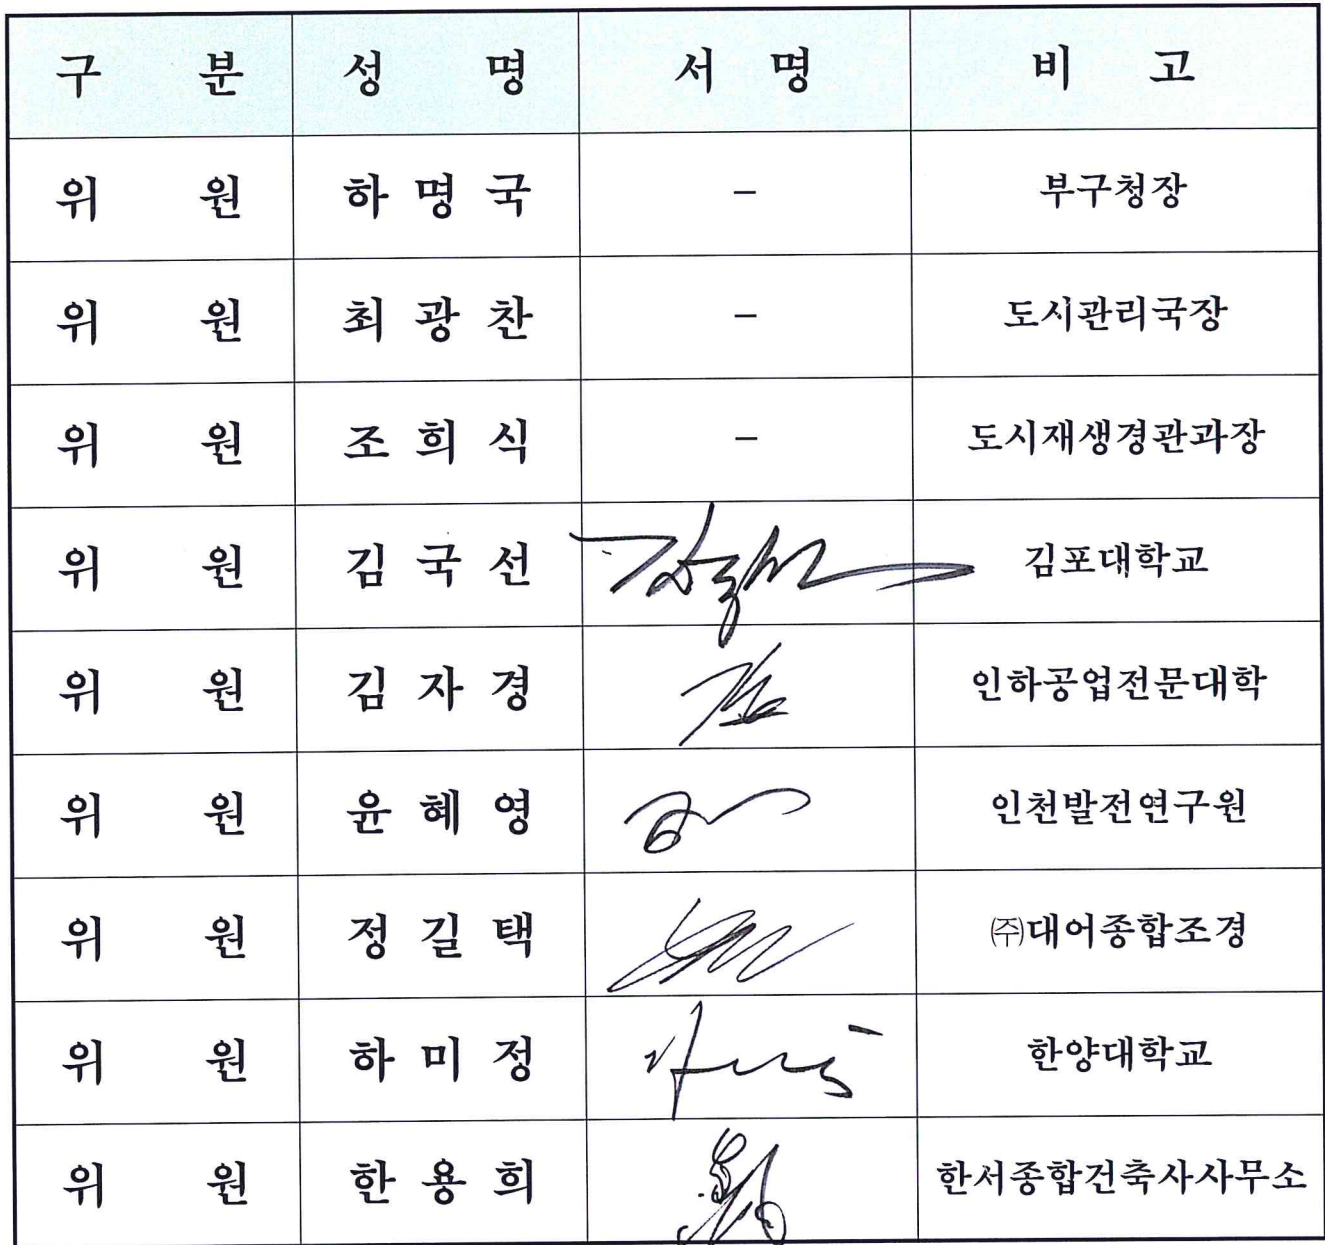 구 분 성 명 서 명 비 고
위 원 하 명 국 - 부구청장
위 원 최 광 찬 - 도시관리국장
위 원 조 희 식 - 도시재생경관과장
위 원 김 국 선 김포대학교
위 원 김 자 경 인하공업전문대학
위 원 윤 혜 영 인천발전연구원
위 원 정 길 택 ㈜대어종합조경
위 원 하 미 정 한양대학교
위 원 한 용 희 한서종합건축사사무소